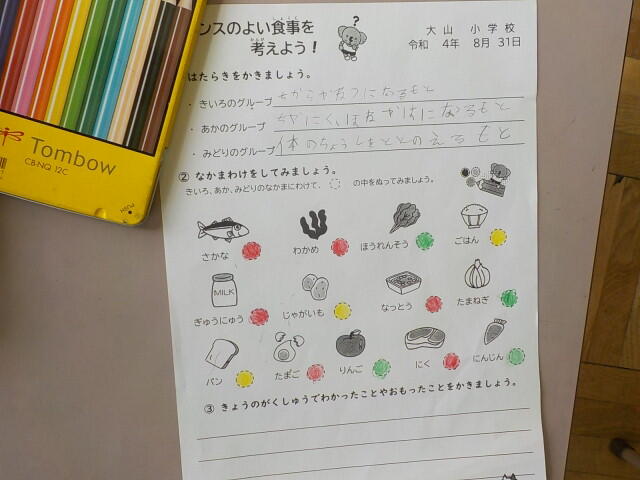 ンスのよい食事を
考えよう！
?
大山 小学校
令和 4年 8月 31日
はたらきをかきましょう。
・きいろのグループ ちからやねつになるもと
・あかのグループ ちやにく、ほねやはになるもと
・みどりのグループ 体のちょうしをととのえるもと
② なかまわけをしてみましょう。
きいろ、あか、みどりのなかまにわけて、 の中をぬってみましょう。
さかな
わかめ
ほうれんそう
ごはん
MILK
ぎゅうにゅう
じゃがいも
なっとう
たまねぎ
パン
たまご
りんご
にく
にんじん
③ きょうのがくしゅうでわかったことやおもったことをかきましょう。
Tombow
CB-NQ 12C
PUSH